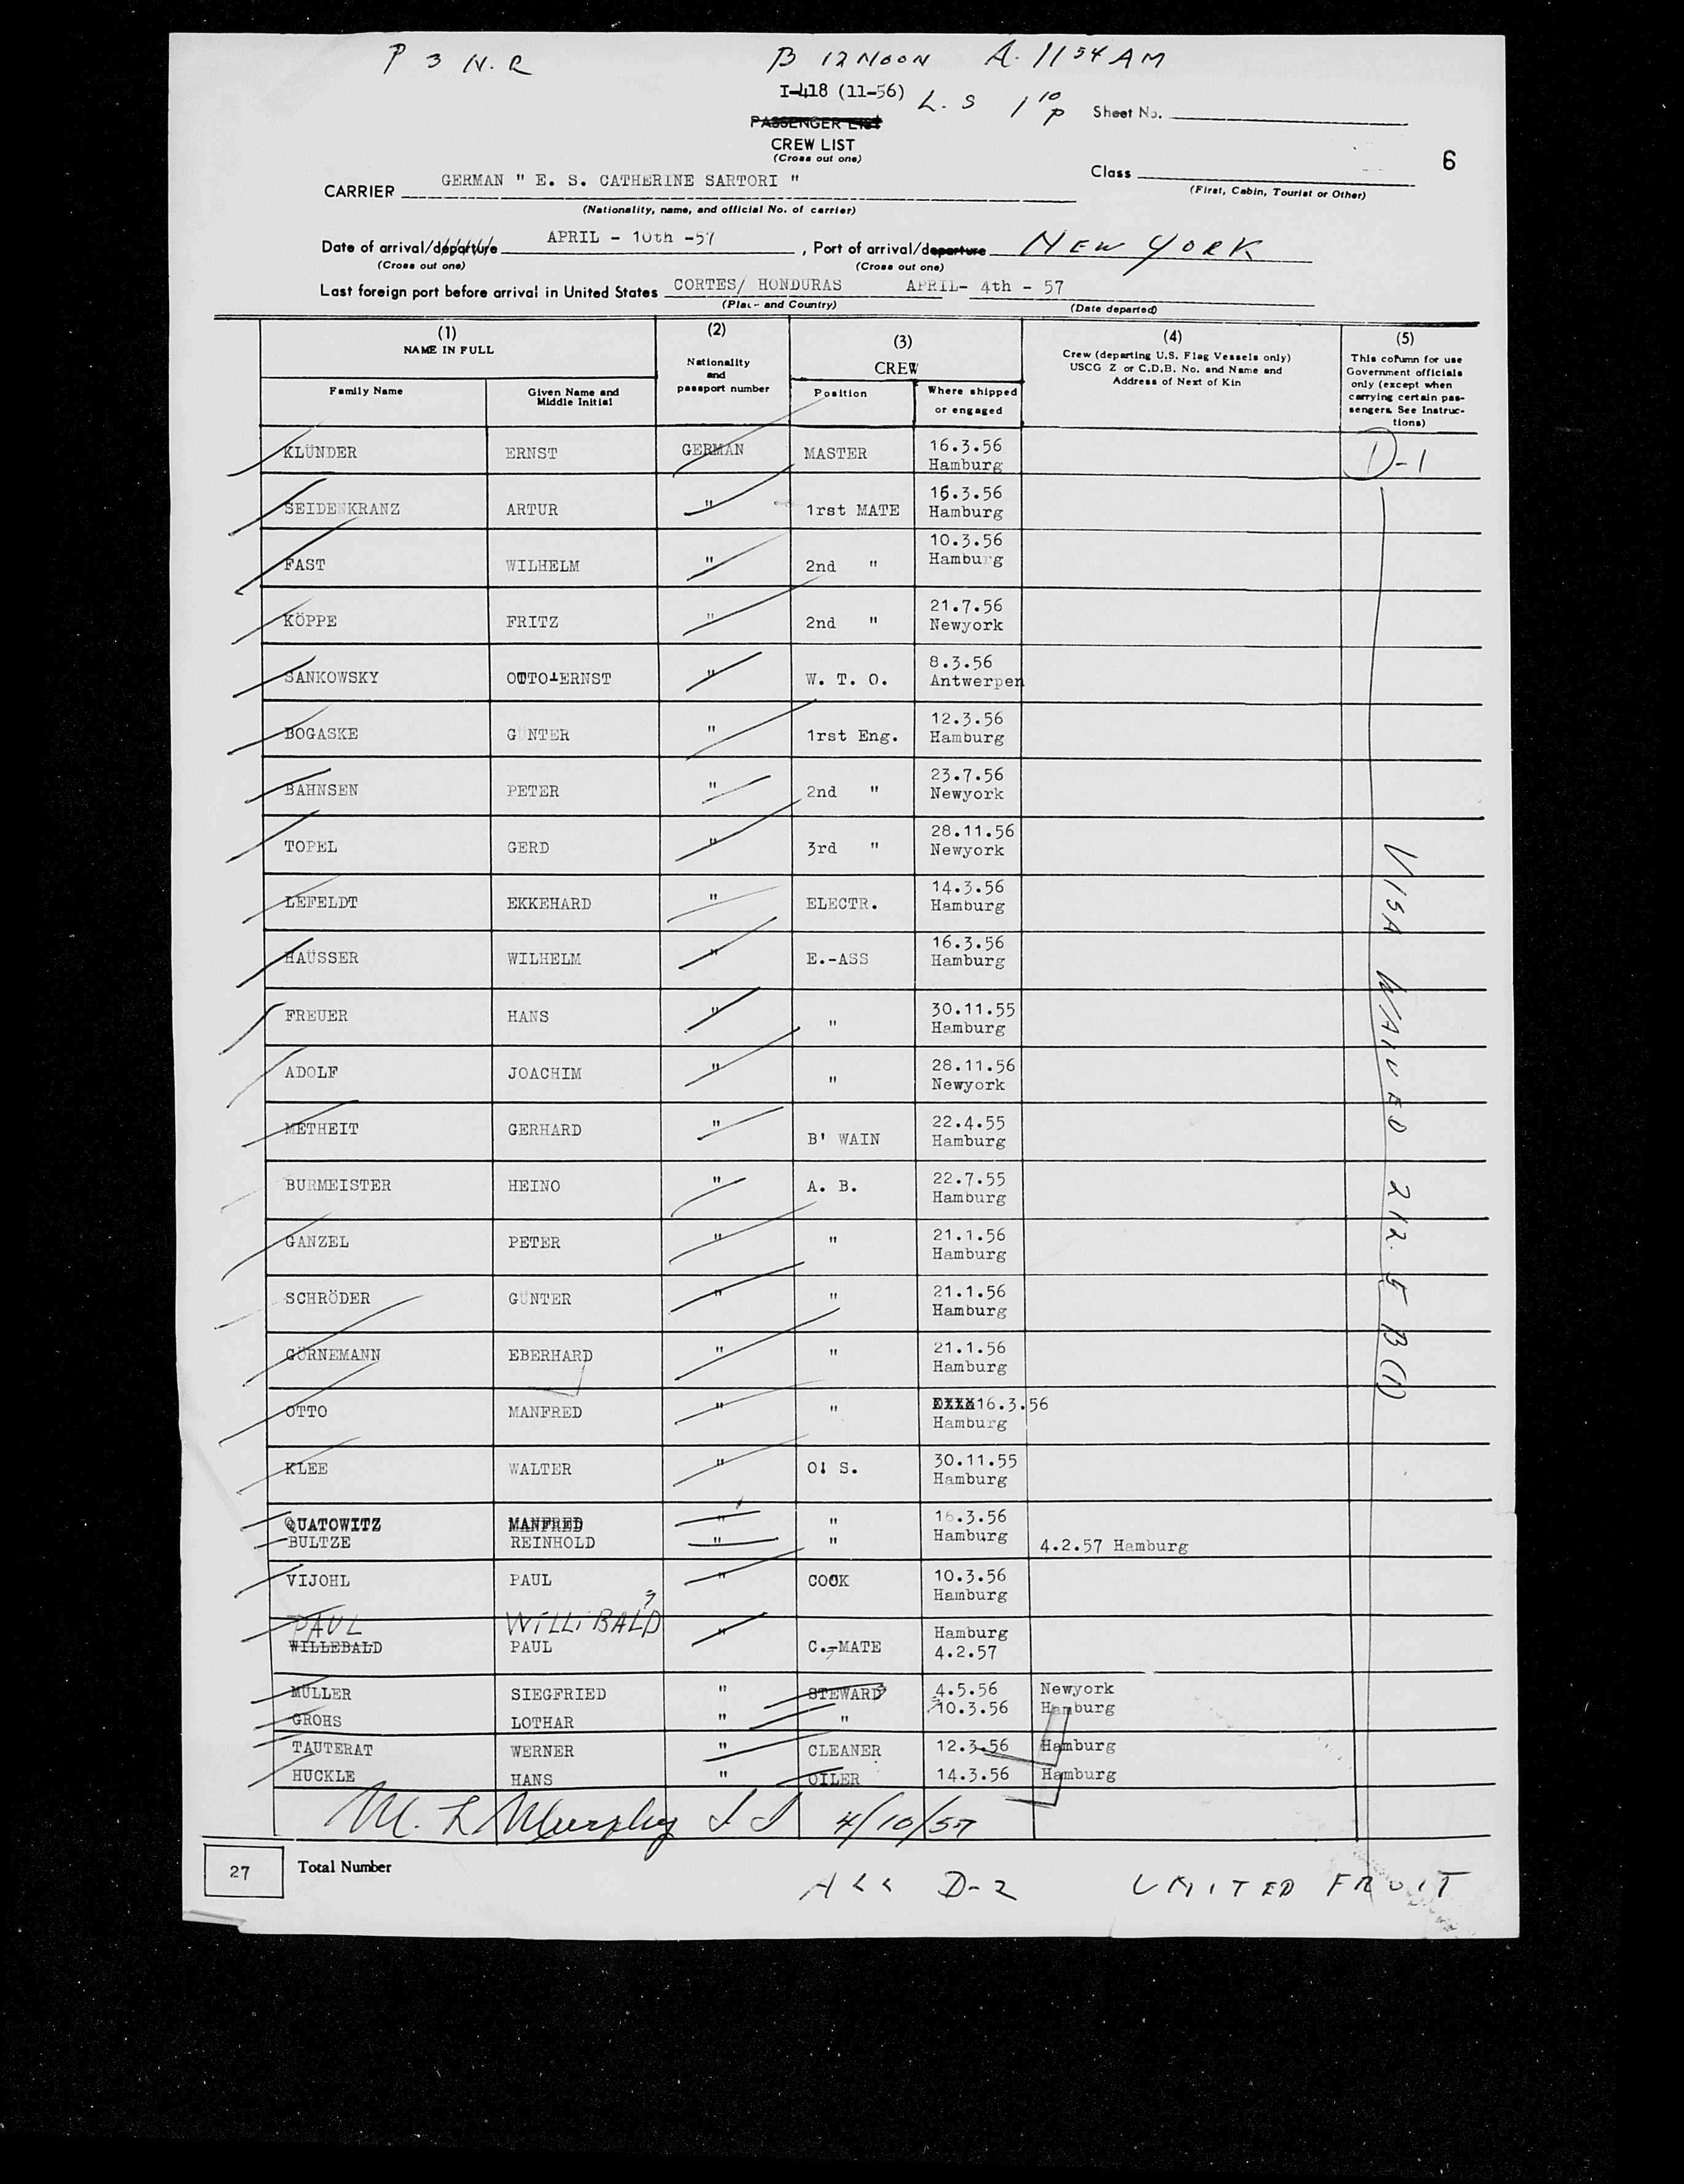 P 3 N.R B 12 NOON A. 11 54 AM
I-418 (11-56) L. S 1 10 P Sheet No.
PASSENGER LIST
CREW LIST
(Cross out one)
6
Class
(First, Cabin, Tourist or Other)
CARRIER GERMAN " E. S. CATHERINE SARTORI "
(Nationality, name, and official No. of carrier)
Date of arrival/departure APRIL - 10th -57 , Port of arrival/departure NEW YORK
(Cross out one) (Cross out one)
Last foreign port before arrival in United States CORTES/ HONDURAS APRIL- 4th - 57
(Place and Country) (Date departed)
(1) (2) (3) (4) (5)
NAME IN FULL
Family Name
Given Name and
Middle Initial
Nationality
and
passport number
CREW
Position
Where shipped
or engaged
Crew (departing U.S. Flag Vessels only)
USCG Z or C.D.B. No. and Name and
Address of Next of Kin
This column for use
Government officials
only (except when
carrying certain pas-
sengers. See Instruc-
tions)
KLÜNDER ERNST GERMAN MASTER 16.3.56
Hamburg
1 - 1
SEIDENKRANZ ARTUR " 1rst MATE 16.3.56
Hamburg
FAST WILHELM " 2nd " 10.3.56
Hamburg
KÖPPE FRITZ " 2nd " 21.7.56
Newyork
SANKOWSKY OTTO-ERNST " W. T. O. 8.3.56
Antwerpen
BOGASKE GÜNTER " 1rst Eng. 12.3.56
Hamburg
BAHNSEN PETER " 2nd " 23.7.56
Newyork
TOPEL GERD " 3rd " 28.11.56
Newyork
LEFELDT EKKEHARD " ELECTR. 14.3.56
Hamburg
HAÜSSER WILHELM " E.-ASS 16.3.56
Hamburg
FREUER HANS " " 30.11.55
Hamburg
ADOLF JOACHIM " " 28.11.56
Newyork
METHEIT GERHARD " B' WAIN 22.4.55
Hamburg
BURMEISTER HEINO " A. B. 22.7.55
Hamburg
GANZEL PETER " " 21.1.56
Hamburg
SCHRÖDER GÜNTER " " 21.1.56
Hamburg
GÖRNEMANN EBERHARD " " 21.1.56
Hamburg
OTTO MANFRED " " 16.3.56
Hamburg
KLEE WALTER " O. S. 30.11.55
Hamburg
QUATOWITZ MANFRED " " 16.3.56
Hamburg
BULTZE REINHOLD " " 4.2.57 Hamburg
VIJOHL PAUL " COOK 10.3.56
Hamburg
PAUL WILLIBALD
WILLEBALD PAUL " C.-MATE Hamburg
4.2.57
MÜLLER SIEGFRIED " STEWARD 4.5.56 Newyork
GROHS LOTHAR " " 10.3.56 Hamburg
TAUTERAT WERNER " CLEANER 12.3.56 Hamburg
HUCKLE HANS " OILER 14.3.56 Hamburg
VISA WAIVED 212. 5 B (1)
M. L Murphy I I 4/10/57
27 Total Number
ALL D-2 UNITED FRUIT